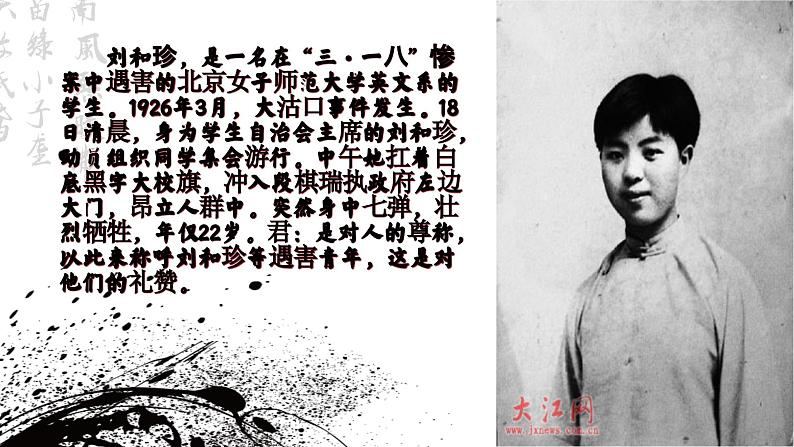 刘和珍，是一名在“三·一八”惨
案中遇害的北京女子师范大学英文系的
学生。1926年3月，大沽口事件发生。18
日清晨，身为学生自治会主席的刘和珍，
动员组织同学集会游行。中午她扛着白
底黑字大校旗，冲入段棋瑞执政府左边
大门，昂立人群中。突然身中七弹，壮
烈牺牲，年仅22岁。君：是对人的尊称，
以此来称呼刘和珍等遇害青年，这是对
他们的礼赞。
大江网
www.jxnews.com.cn